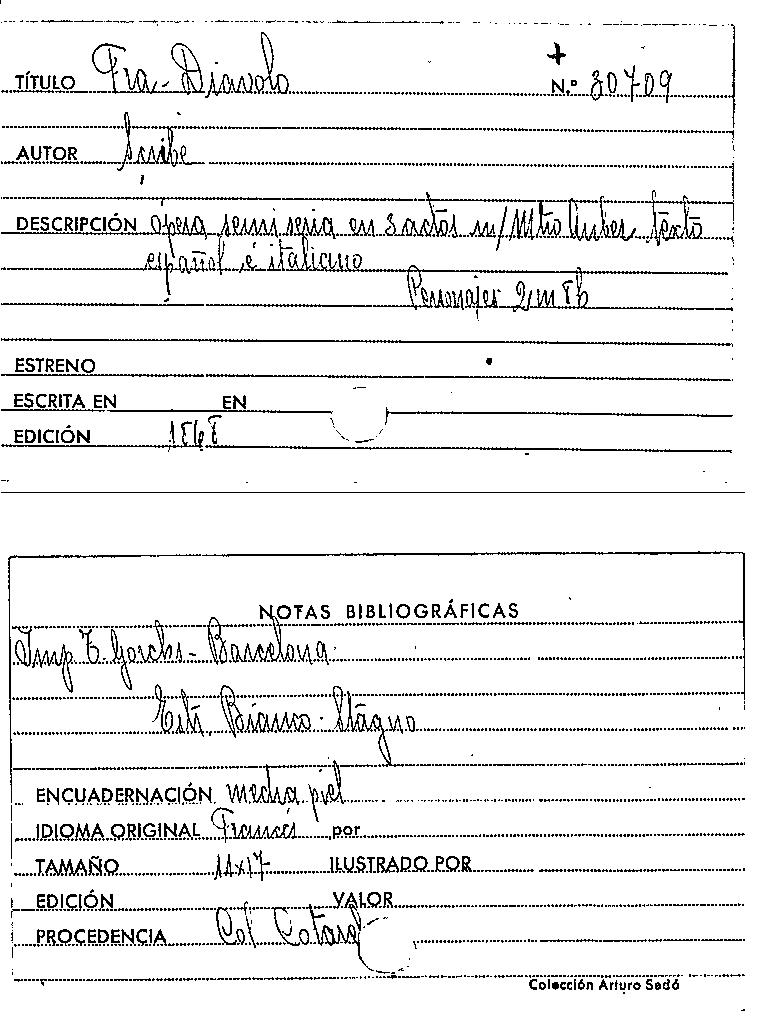 TÍTULO Fra-Diavolo
+
N.º 30709
AUTOR Scribe
DESCRIPCIÓN ópera semi seria en 3 actos m/ Mtro Auber. texto
español é italiano
Personajes 2m 8h
ESTRENO
ESCRITA EN EN
EDICIÓN 1868
NOTAS BIBLIOGRÁFICAS
Imp T. Gorchs - Barcelona
Estr. Bianco - Stagno
ENCUADERNACIÓN media piel
IDIOMA ORIGINAL Francés por
TAMAÑO 11x17 ILUSTRADO POR
EDICIÓN VALOR
PROCEDENCIA Col
Colección Arturo Sedó